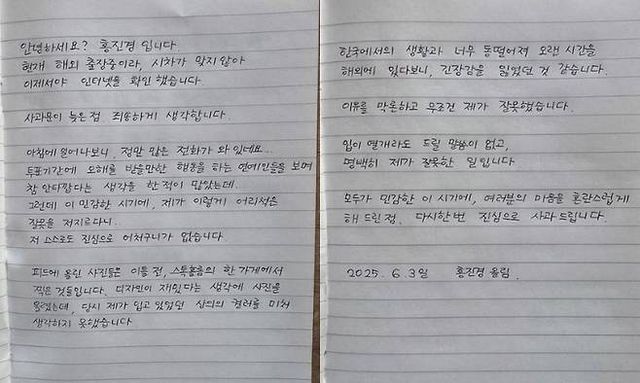 안녕하세요? 홍진경 입니다.
현재 해외 출장중이라, 시차가 맞지 않아
이제서야 인터넷을 확인 했습니다.
사과문이 늦은점 죄송하게 생각합니다.
아침에 일어나보니, 정말 많은 전화가 와 있네요...
투표기간에 오해를 받을만한 행동을 하는 연예인들을 보며
참 안타깝다는 생각을 한 적이 많았는데.
그런데 이 민감한 시기에, 제가 이렇게 어리석은
잘못을 저지르다니..
저 스스로도 진심으로 어처구니가 없습니다.
피드에 올린 사진들은 이틀 전, 스톡홀름의 한 가게에서
찍은 것들입니다. 디자인이 재밌다는 생각에 사진을
올렸는데, 당시 제가 입고 있었던 상의의 컬러를 미처
생각하지 못했습니다
한국에서의 생활과 너무 동떨어져 오랜 시간을
해외에 있다보니, 긴장감을 잃었던 것 같습니다.
이유를 막론하고 무조건 제가 잘못했습니다.
입이 열개라도 드릴 말씀이 없고,
명백히 제가 잘못한 일 입니다
모두가 민감한 이 시기에, 여러분의 마음을 혼란스럽게
해 드린 점. 다시한번 진심으로 사과 드립니다.
2025. 6. 3일 홍진경 올림.